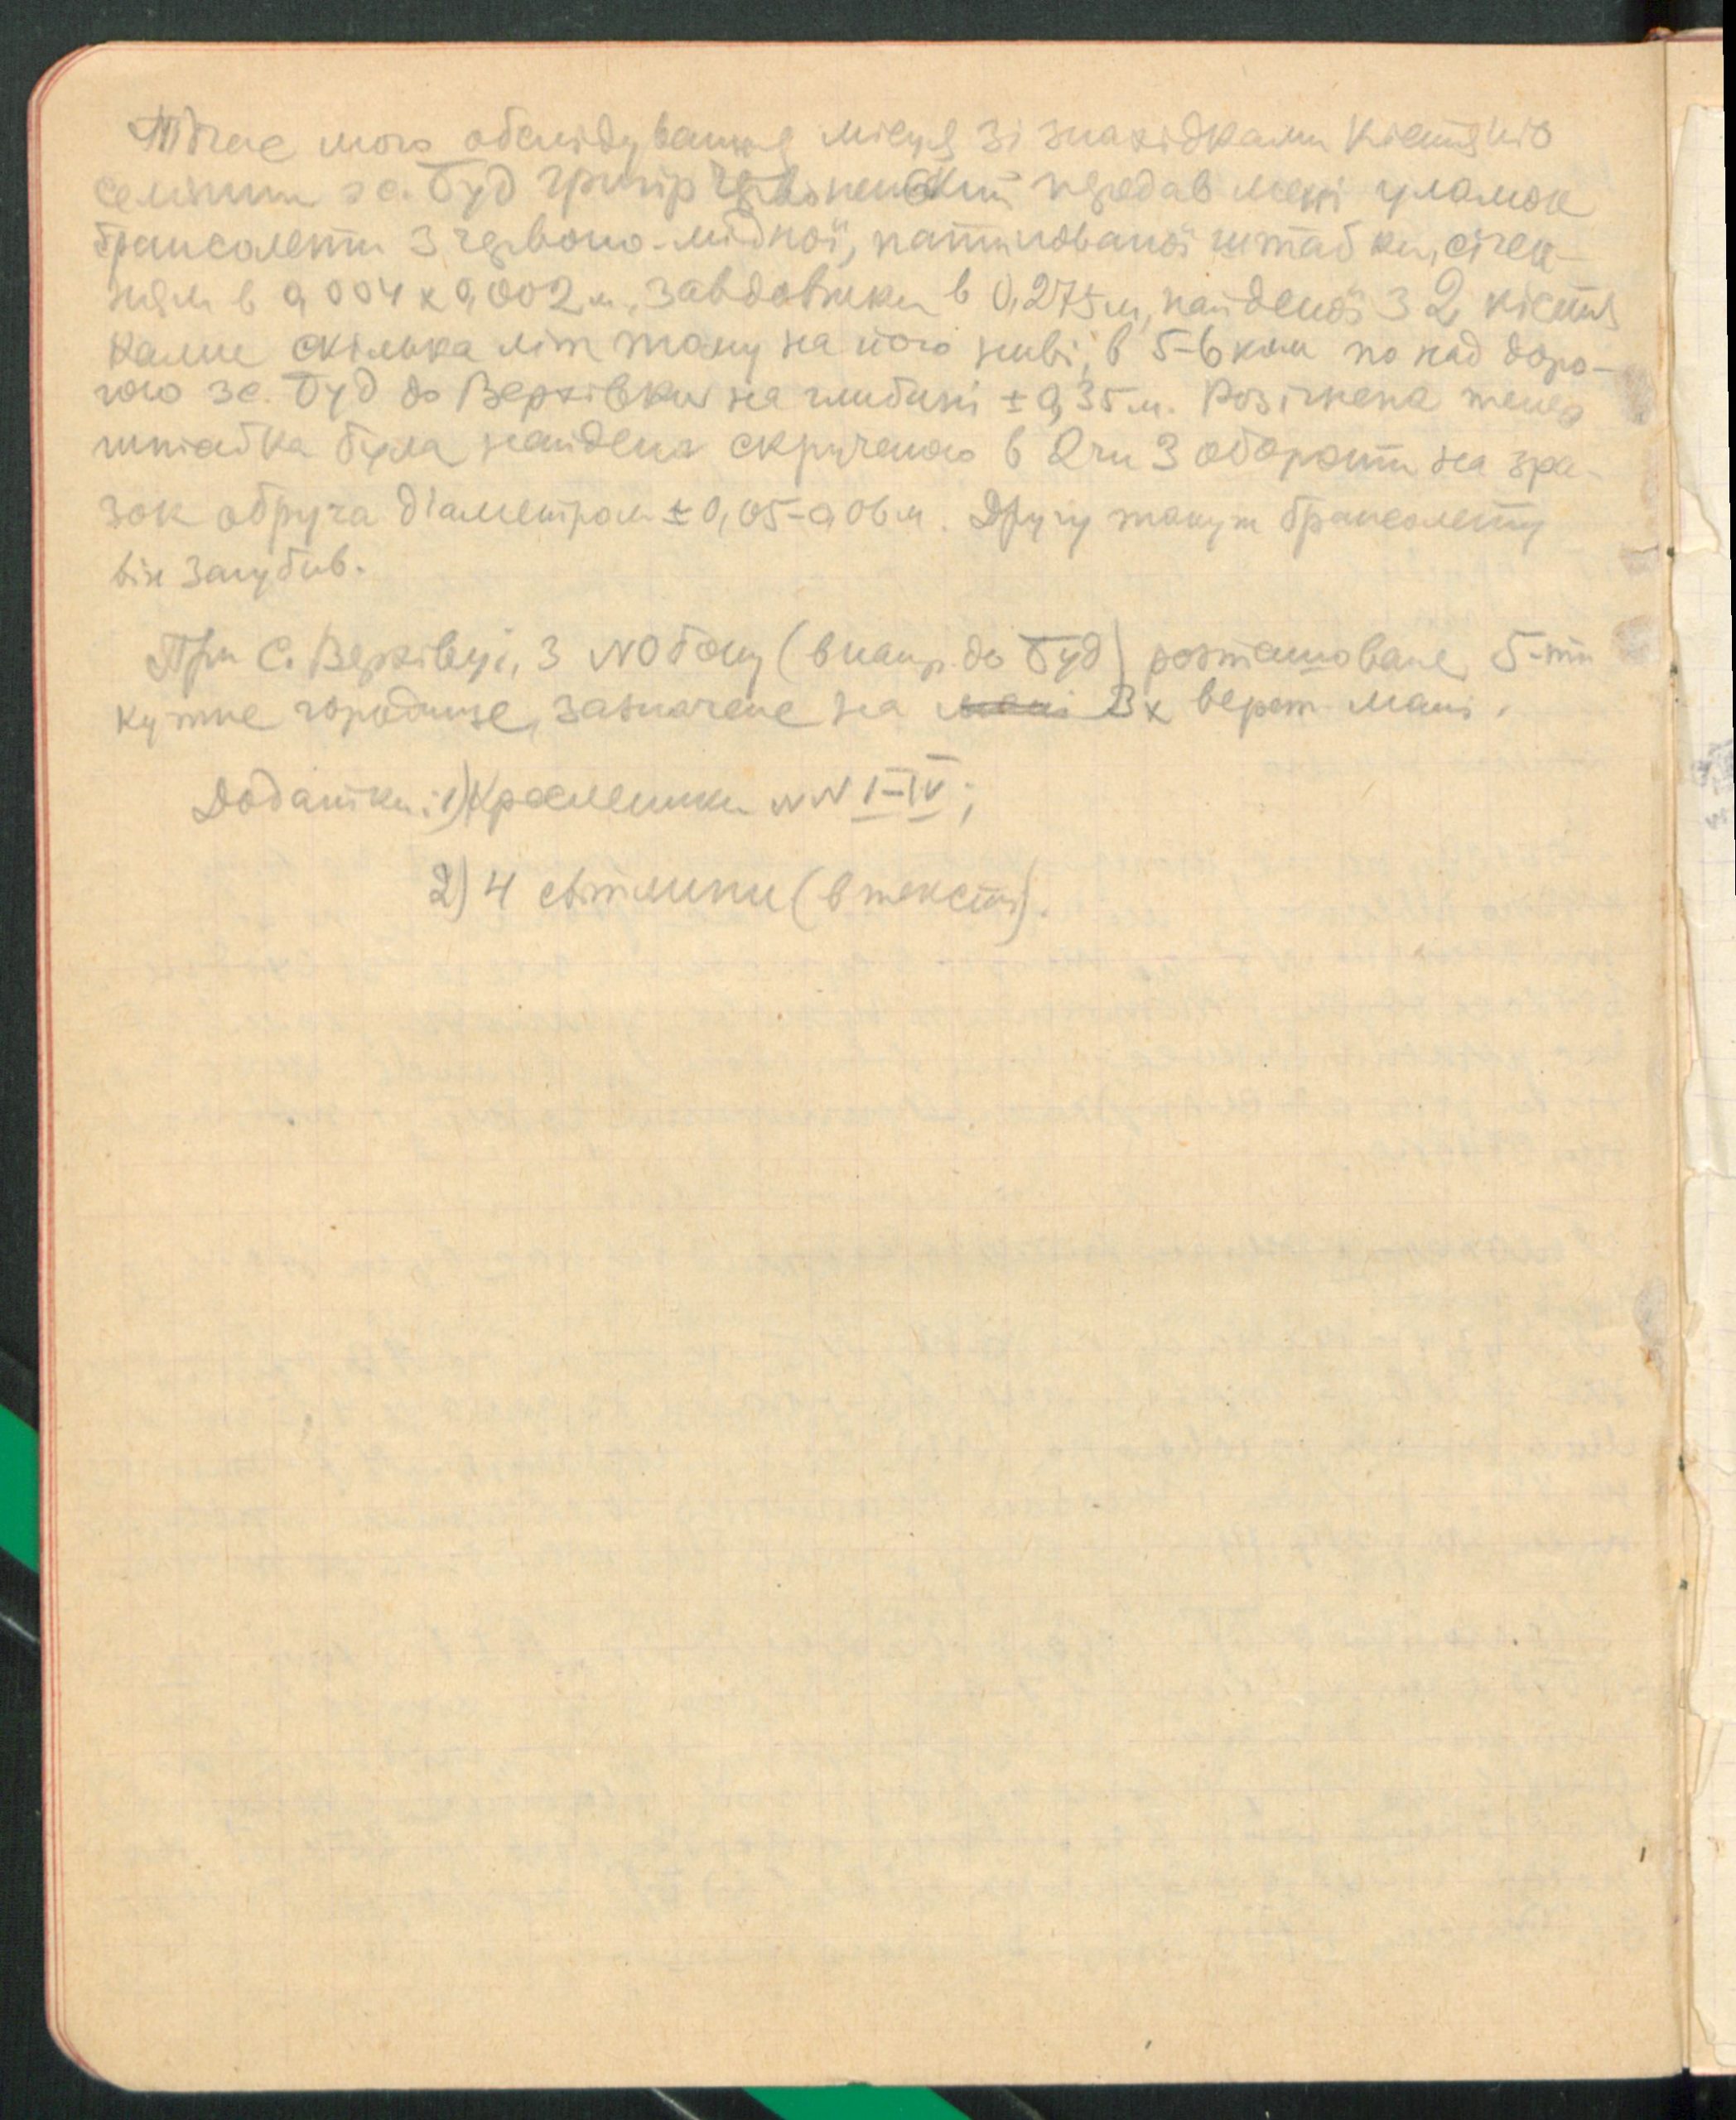 Підчас мого обслідування місця зі знахідками кістяків
селянин з с. Буд Григір передав мені уламок
бранзолети з червоно-мідної, патинованої штабки, січен-
ням в 0,004 x 0,002 м, завдовжки в 0,275 м, найденої з 2 кістя
ками скілька літ тому на його ниві, в 5-6 клм по над доро-
гою з с. Буд до Верхівки на глибині ± 0,35 м. Розігнена тепер
штабка була найдена скрученою в 2 чи 3 обороти на зра-
зок обруча діаметром ± 0,05-0,06 м. Другу таку ж бранзолету
він загубив.
При с. Верхівці, з NO боку (в напр. до Буд) розташоване 5-ти
кутне городище, зазначене на мапі 3х верст. мапі.
Додатки: 1) Кресленики NN I-IV;
2) 4 світлини (в тексті).